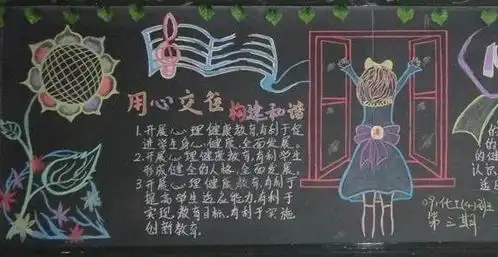 用心交往 构建和谐
1.开展心理健康教育,有利于促
进学生身心健康、全面发展。
2.开展心理健康教育,有利学生
形成健全的人格,全面发展。
3.开展心理健康教育,有利于
提高学生适应能力,有利于
实现教育目标,有利于实施
创新教育。
第三期